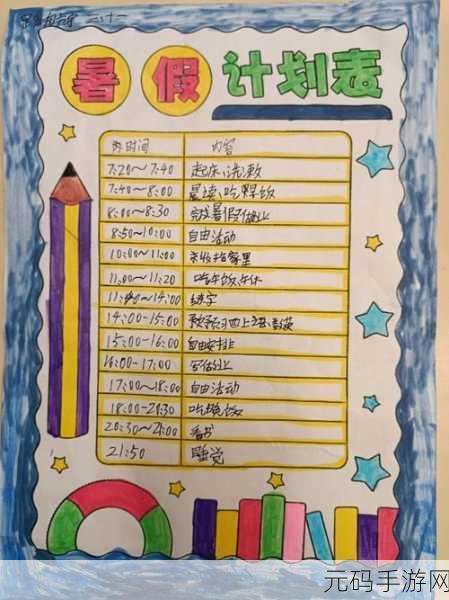 暑假计划表
时间 内容
7:20~7:40 起床、洗漱
7:40~8:00 晨读、吃早饭
8:00~8:30 完成暑假作业
8:50~10:00 自由活动
10:00~11:00
11:00~11:20 吃午饭、午休
11:40~14:00 练字
14:00-15:00 预习四上语、数、英
15:00-16:00 自由安排
16:00-17:00 写作业
17:00~18:00 自由活动
18:00-20:30 吃晚饭
20:30~21:00 看书
21:50 睡觉
元码手游网